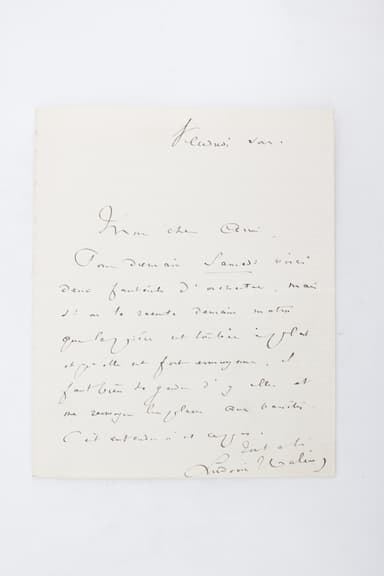 Vendredi soir.
Mon cher Ami,
Pour demain Samedi voici
deux fauteuils d'orchestre, mais
si on le raconte demain matin
que la pièce est tombée à plat
et qu'elle est fort ennuyeuse, il
faut bien se garder d'y aller et
me renvoyer les places aux
C'est entendu n'est ce pas.
Tout à toi
Ludovic Halévy